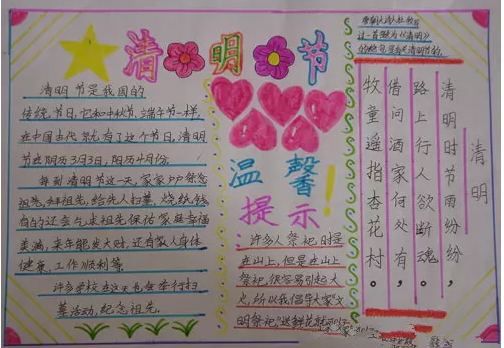 清明节
清明节是我国的
传统节日,它和中秋节、端午节一样
在中国古代就有了这个节日,清明
节在阴历3月3日,阳历4月份。
每到清明节这一天,家家户户祭念
祖先,拜祖先,给先人扫墓,烧纸钱
有的还会乞求祖先保佑家庭幸福
美满,来年能发大财,还有家人身体
健康,工作顺利等。
许多学校在这天也会举行扫
墓活动,纪念祖先.
温馨
提示!
许多人祭祀时是
在山上,但是在山上
祭祀,很容易引起火
灾,所以我倡导大家"文
明祭祀",送鲜花就可以
清明
清明时节雨纷纷,
路上行人欲断魂。
借问酒家何处有,
牧童遥指杏花村。